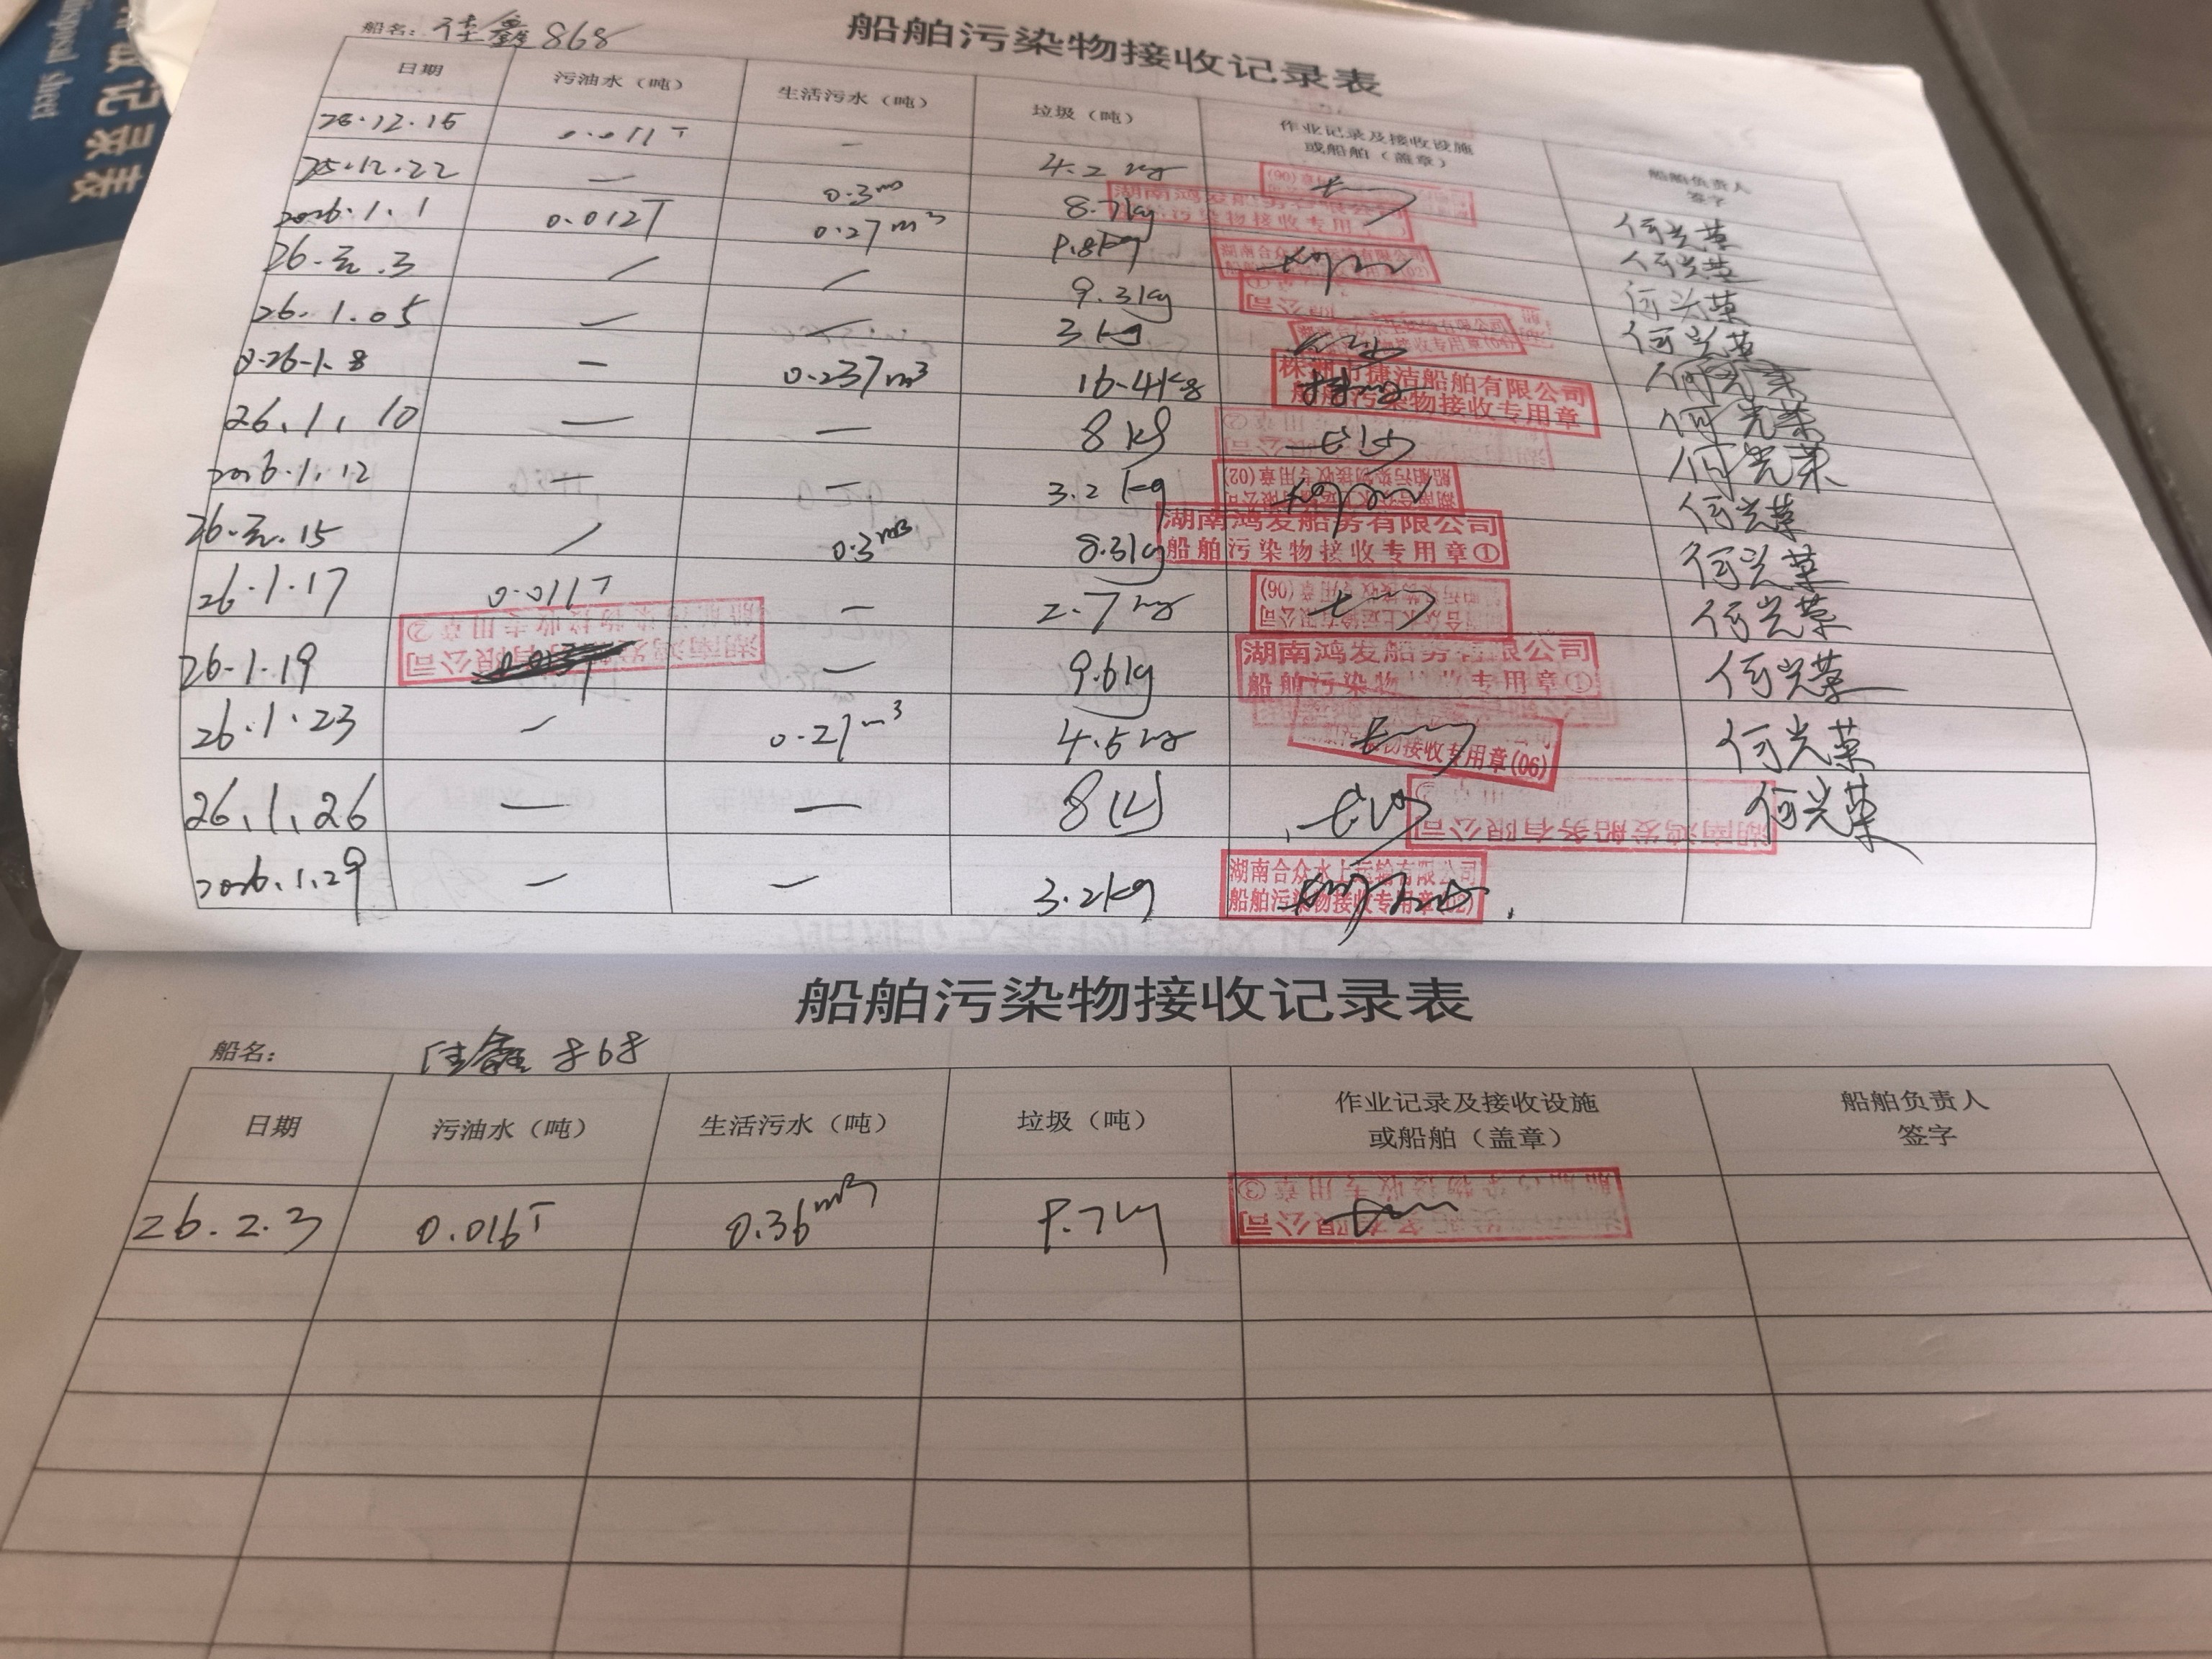 收记录表
disposal sheet
船舶污染物接收记录表
船名：佳鑫868
日期 污油水（吨） 生活污水（吨） 垃圾（吨） 作业记录及接收设施或船舶（盖章） 船舶负责人签字
25.12.15 0.011T — 4.2kg 何光荣
25.12.22 — 0.3m³ 8.7kg 湖南鸿发船务有限公司 船舶污染物接收专用章 何光荣
2026.1.1 0.012T 0.27m³ 9.8kg 湖南合众水上运输有限公司 船舶污染物接收专用章(02) 何光荣
26.元.3 / / 9.3kg 何光荣
26.1.05 — — 3kg 何光荣
2026.1.8 — 0.237m³ 16.4kg 株洲市捷洁船舶有限公司 船舶污染物接收专用章 何光荣
26.1.10 — — 8kg 何光荣
2026.1.12 — — 3.2kg 船舶污染物接收专用章(02) 何光荣
26.元.15 / 0.3m³ 8.3kg 湖南鸿发船务有限公司 船舶污染物接收专用章① 何光荣
26.1.17 0.011T — 2.7kg 湖南合众水上运输有限公司 船舶污染物接收专用章(06) 何光荣
26.1.19 湖南鸿发船务有限公司 船舶污染物接收专用章② — 9.6kg 湖南鸿发船务有限公司 船舶污染物接收专用章① 何光荣
26.1.23 — 0.27m³ 4.5kg 接收专用章(06) 何光荣
26.1.26 — — 8kg 湖南鸿发船务有限公司 何光荣
2026.1.29 — — 3.2kg 湖南合众水上运输有限公司 船舶污染物接收专用章(02)
船舶污染物接收记录表
船名： 佳鑫868
日期 污油水（吨） 生活污水（吨） 垃圾（吨） 作业记录及接收设施或船舶（盖章） 船舶负责人签字
26.2.3 0.016T 0.36m³ 9.7kg 船舶污染物接收专用章③